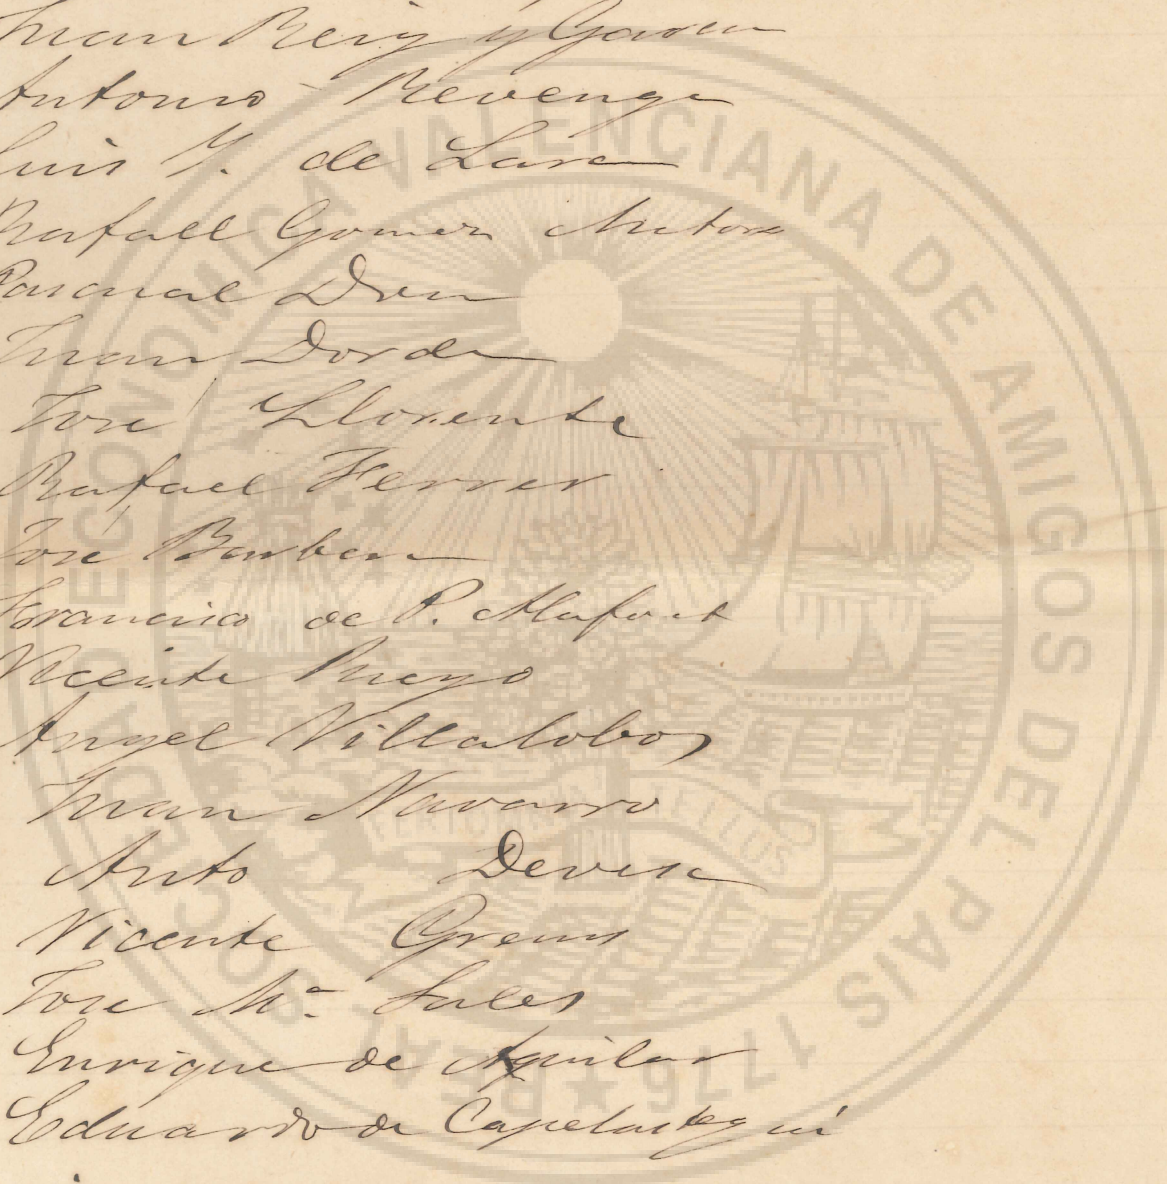 Juan Reig y Garcia
Antonio Revenga
Luis Y. de Lara
Rafael Gomez
Pascual Dreu
Juan Dorda
José Llorente
Rafael Ferrer
José Barbera
Francisco de P. Alafont
Vicente Pueyo
Angel Villalobos
Juan Navarro
Anto Devesa
Vicente Greus
Jose Mª Sales
Enrique de Aguilar
Eduardo de Capelastegui
REAL SOCIEDAD ECONOMICA VALENCIANA DE AMIGOS DEL PAIS 1776